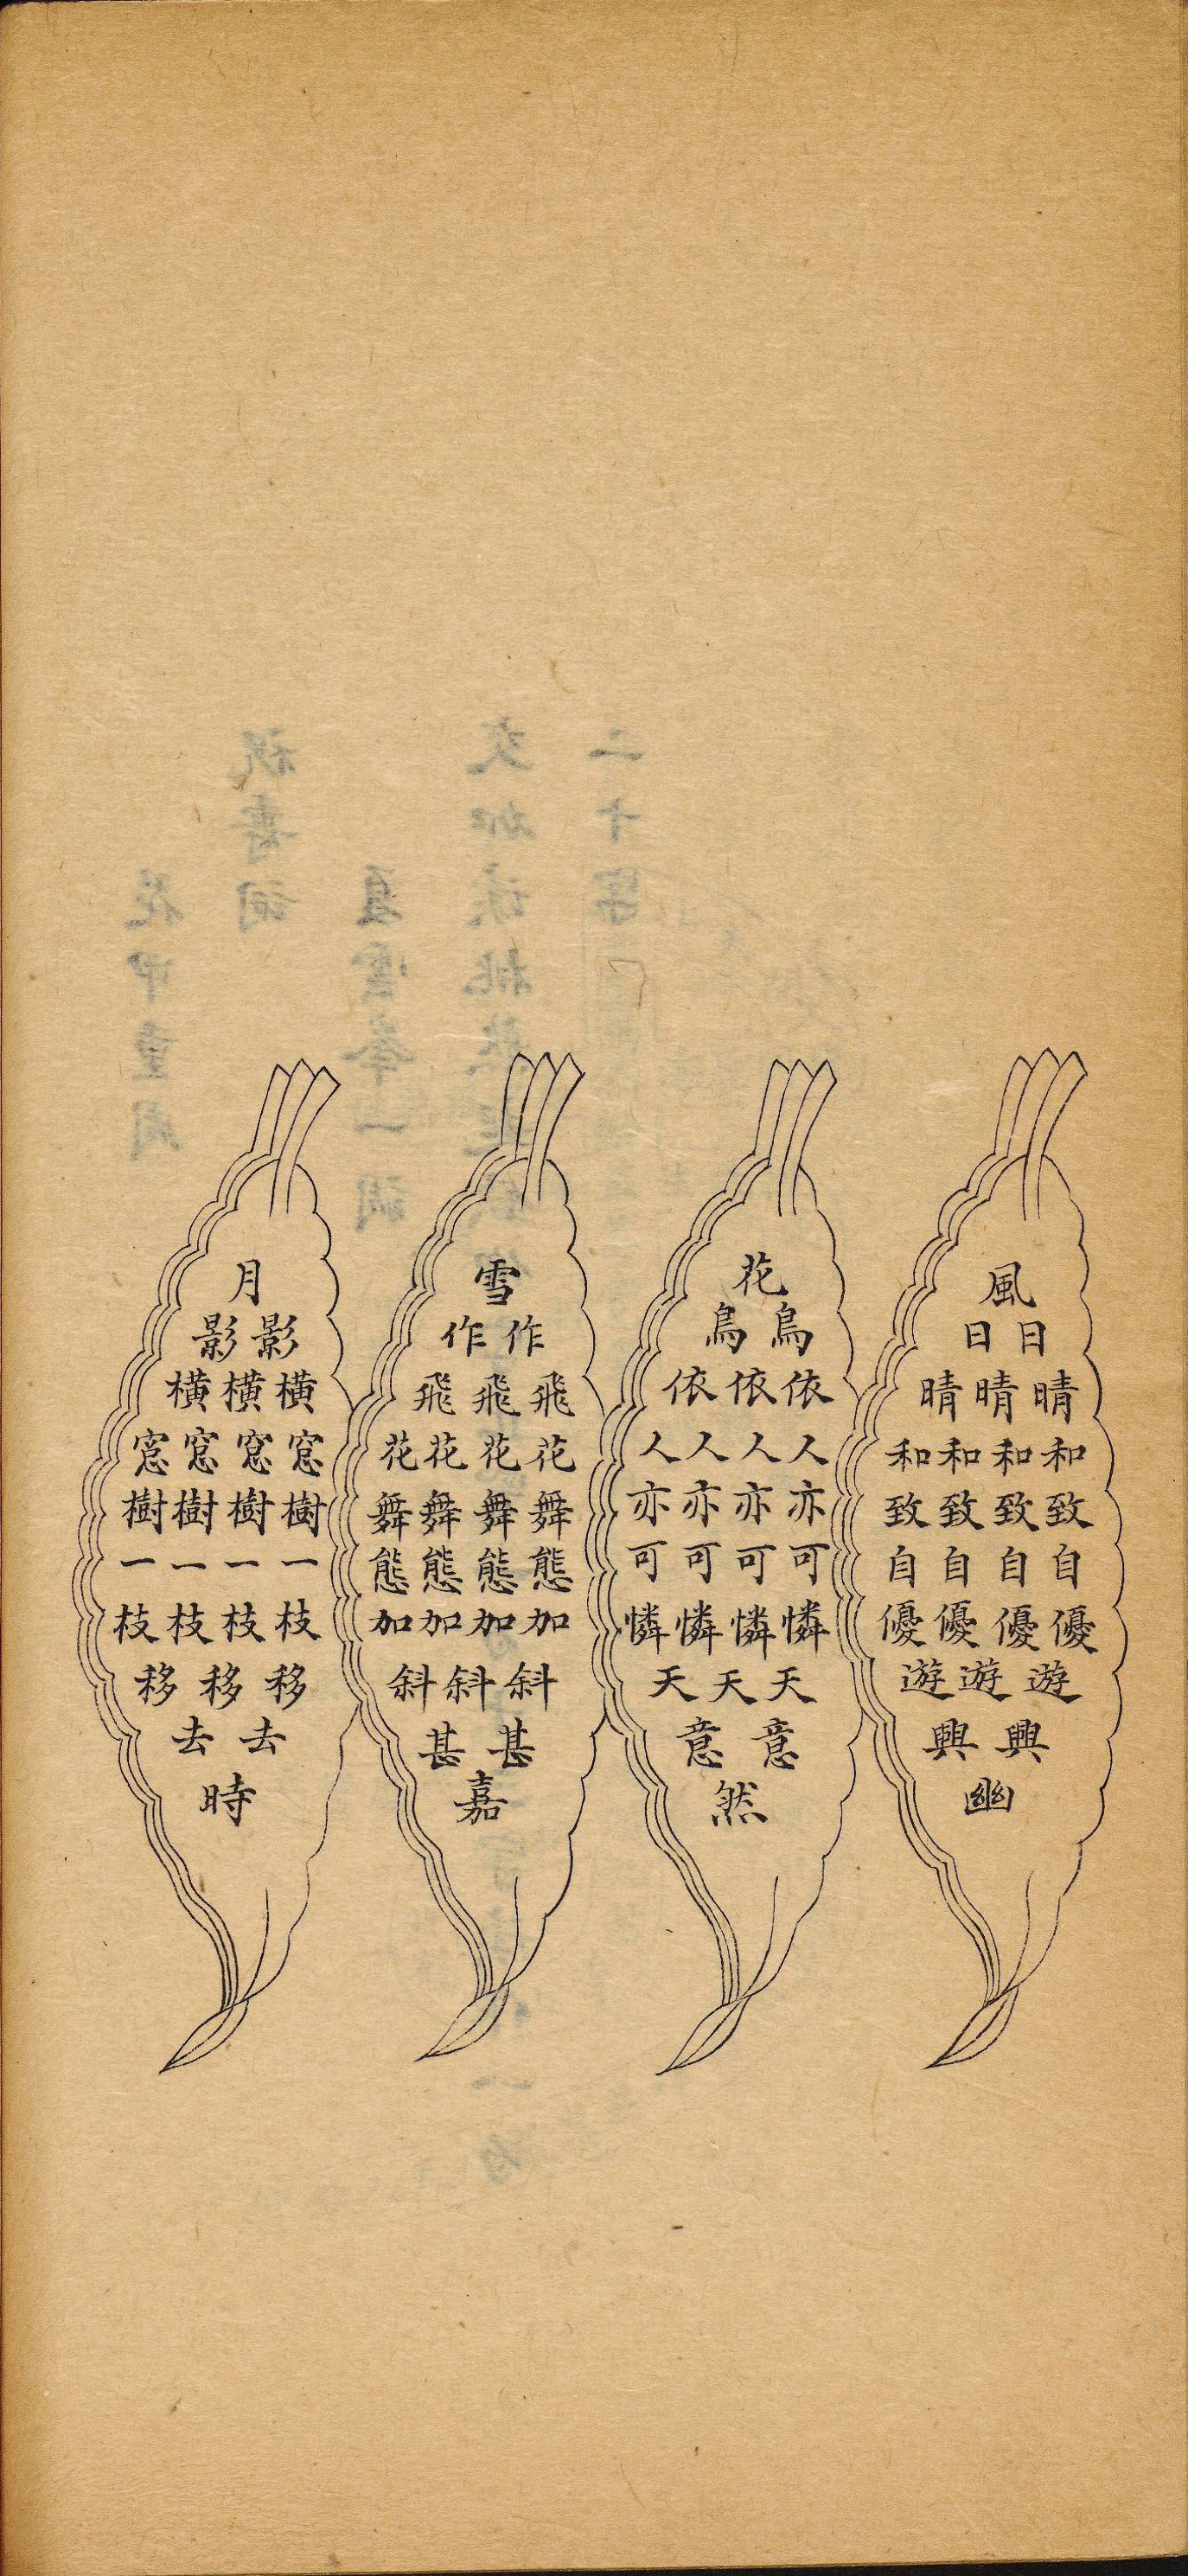 風
日日
晴晴晴
和和和和
致致致致
自自自自
優優優優
遊遊遊
興興
幽
花
鳥鳥
依依依
人人人人
亦亦亦亦
可可可可
憐憐憐憐
天天天
意意
然
雪
作作
飛飛飛
花花花花
舞舞舞舞
態態態態
加加加加
斜斜斜
甚甚
嘉
月
影影
橫橫橫
窓窓窓窓
樹樹樹樹
一一一一
枝枝枝枝
移移移
去去
時